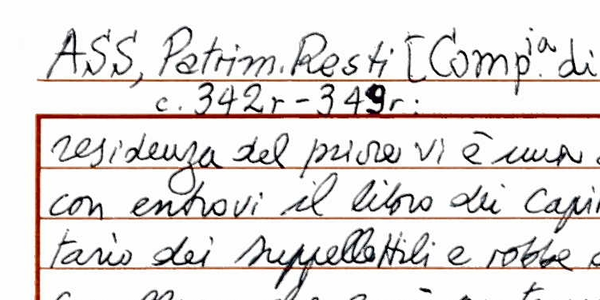 ASS, Patrim. Resti [Comp.ia di
c. 342r - 349r:
residenza del priore vi è una
con entrovi il libro dei Capi
tario dei suppellettili e robbe